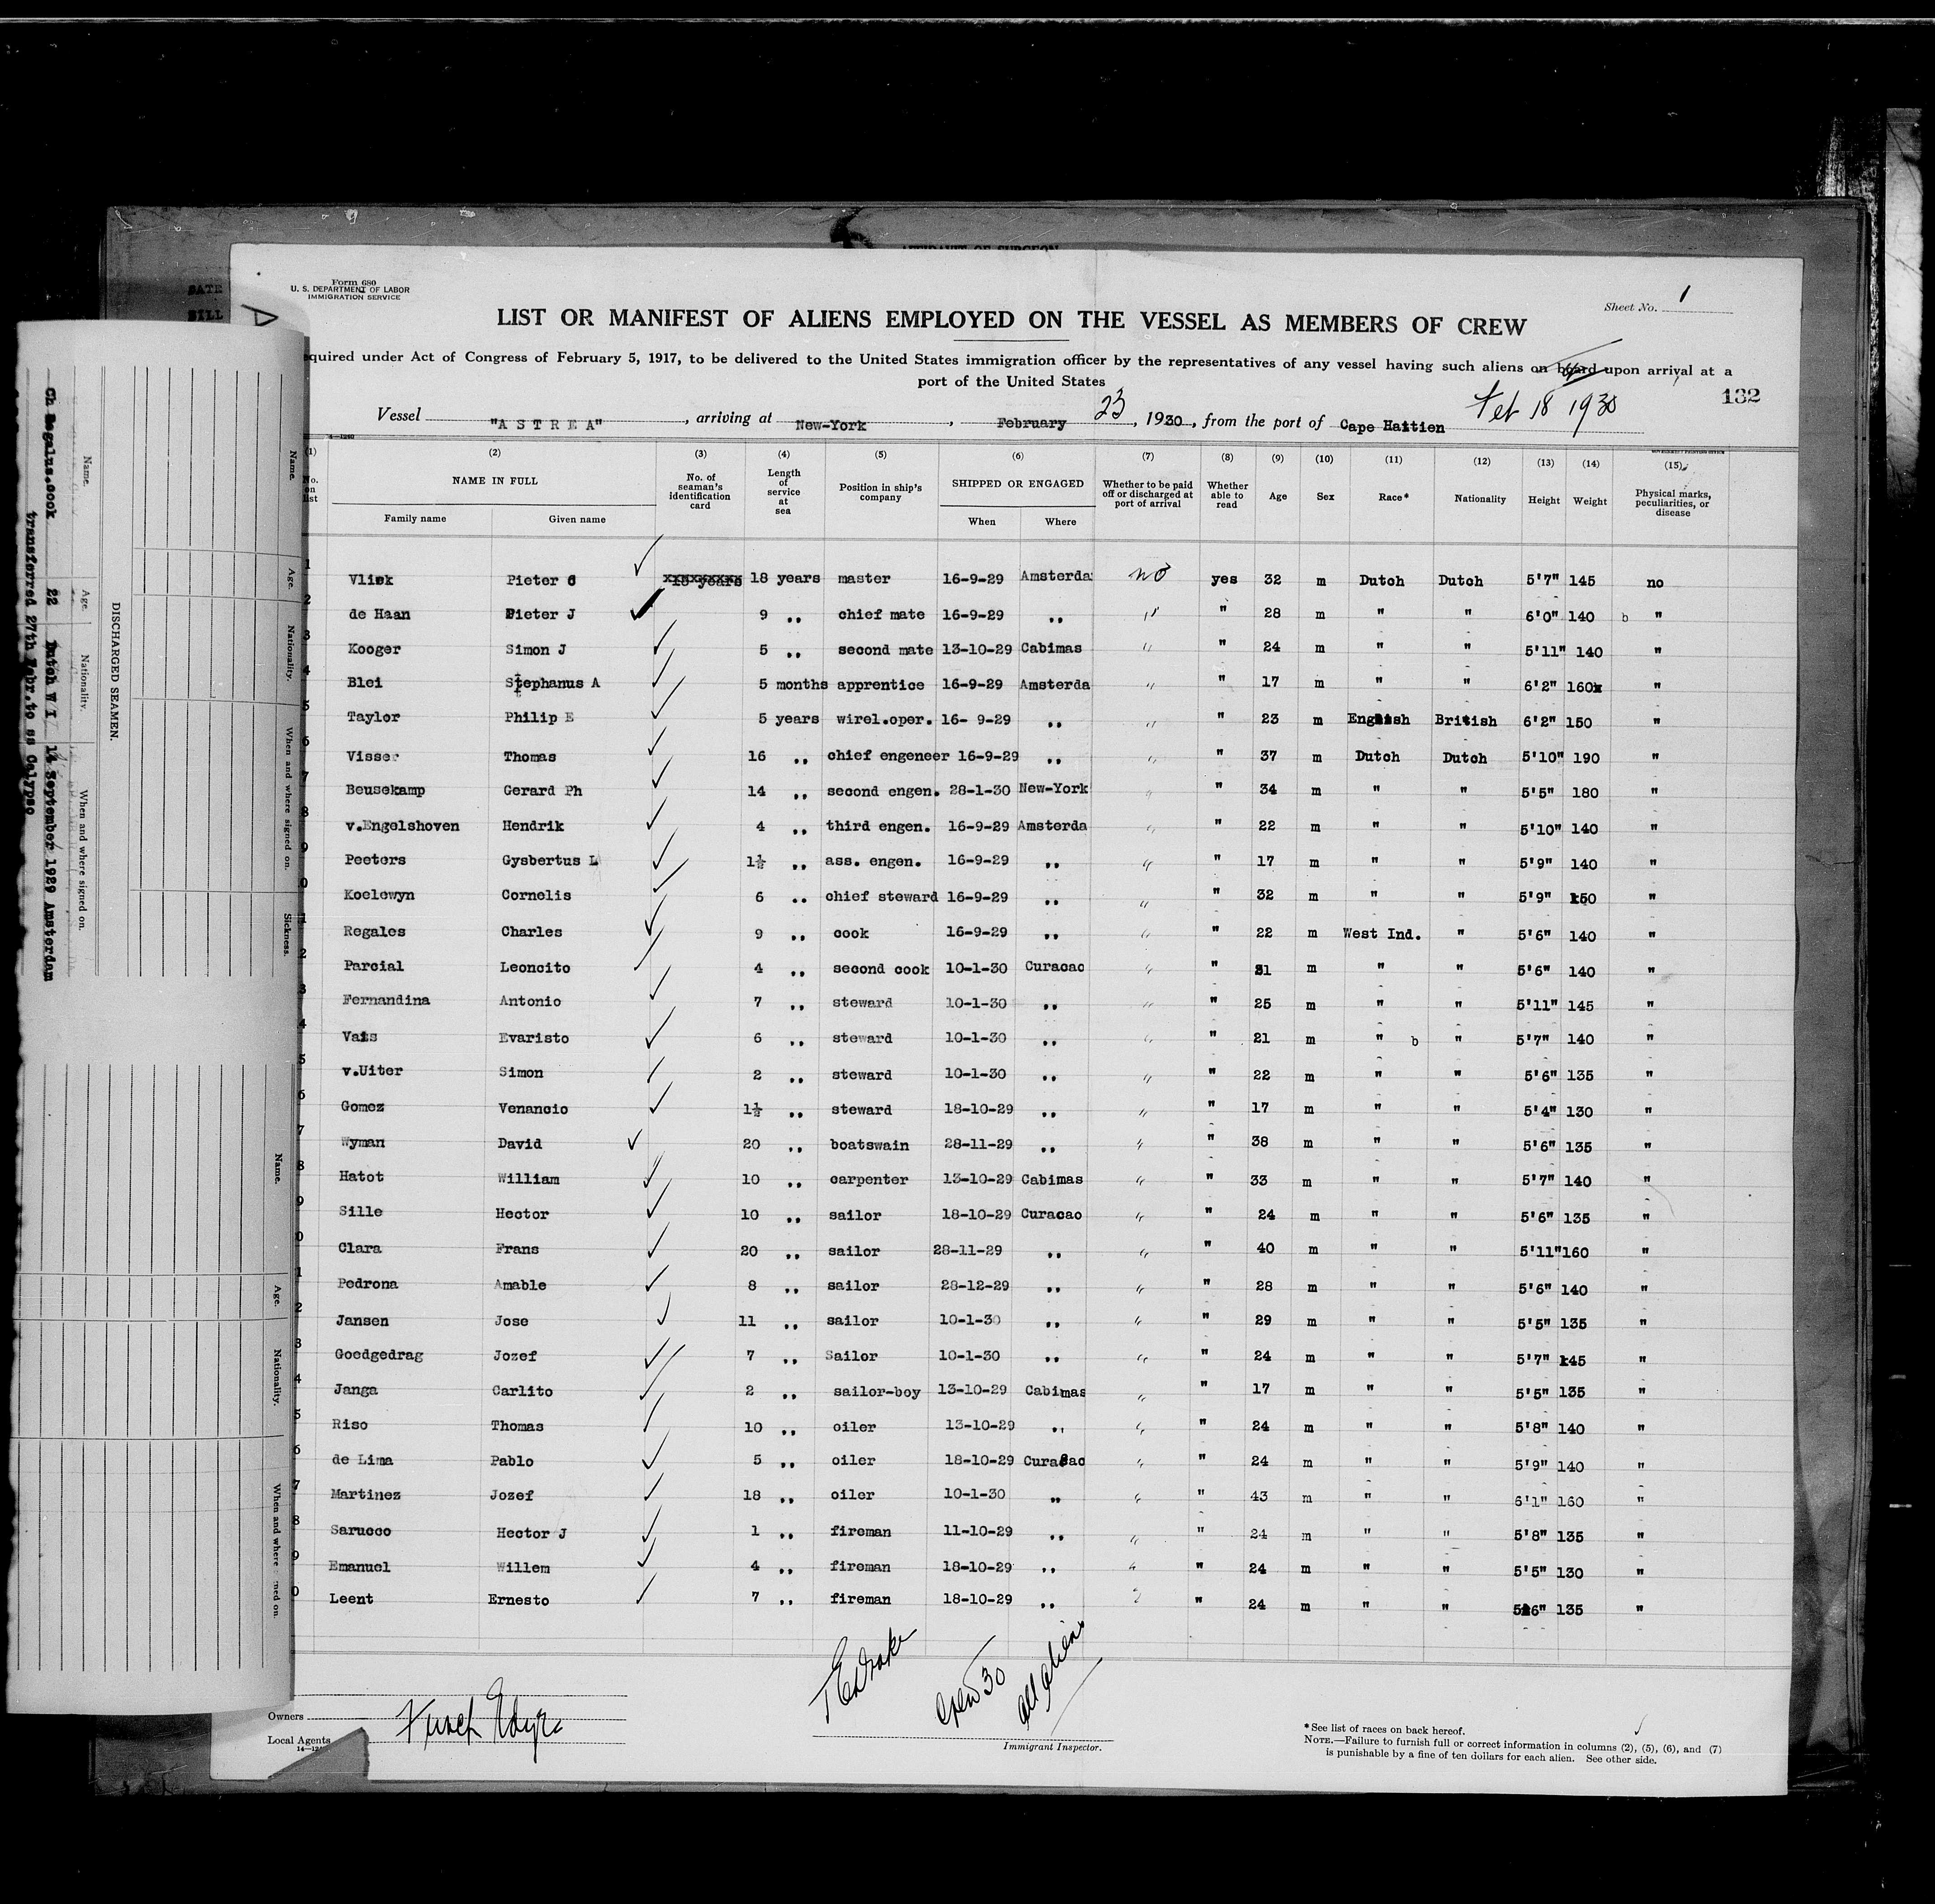 AFFIDAVIT OF SURGEON
Form 680
U. S. DEPARTMENT OF LABOR
IMMIGRATION SERVICE
Sheet No. 1
LIST OR MANIFEST OF ALIENS EMPLOYED ON THE VESSEL AS MEMBERS OF CREW
quired under Act of Congress of February 5, 1917, to be delivered to the United States immigration officer by the representatives of any vessel having such aliens on board upon arrival at a
port of the United States
132
Vessel "ASTREA", arriving at New-York, February 23, 1930, from the port of Cape Haitien Feb 18 1930
(1) (2) (3) (4) (5) (6) (7) (8) (9) (10) (11) (12) (13) (14) (15)
No. on list NAME IN FULL Family name Given name No. of seaman's identification card Length of service at sea Position in ship's company SHIPPED OR ENGAGED When Where Whether to be paid off or discharged at port of arrival Whether able to read Age Sex Race* Nationality Height Weight Physical marks, peculiarities, or disease
1 Vliek Pieter C 18 years master 16-9-29 Amsterda no yes 32 m Dutch Dutch 5'7" 145 no
2 de Haan Pieter J 9 ,, chief mate 16-9-29 ,, " " 28 m " " 6'0" 140 b "
3 Kooger Simon J 5 ,, second mate 13-10-29 Cabimas " " 24 m " " 5'11" 140 "
4 Blei Stephanus A 5 months apprentice 16-9-29 Amsterda " " 17 m " " 6'2" 160 "
5 Taylor Philip E 5 years wirel.oper. 16- 9-29 ,, " " 23 m English British 6'2" 150 "
6 Visser Thomas 16 ,, chief engeneer 16-9-29 ,, " " 37 m Dutch Dutch 5'10" 190 "
7 Beusekamp Gerard Ph 14 ,, second engen. 28-1-30 New-York " " 34 m " " 5'5" 180 "
8 v.Engelshoven Hendrik 4 ,, third engen. 16-9-29 Amsterda " " 22 m " " 5'10" 140 "
9 Peeters Gysbertus L 1½ ,, ass. engen. 16-9-29 ,, " " 17 m " " 5'9" 140 "
0 Koelewyn Cornelis 6 ,, chief steward 16-9-29 ,, " " 32 m " " 5'9" 150 "
1 Regales Charles 9 ,, cook 16-9-29 ,, " " 22 m West Ind. " 5'6" 140 "
2 Parcial Leoncito 4 ,, second cook 10-1-30 Curacao " " 31 m " " 5'6" 140 "
3 Fernandina Antonio 7 ,, steward 10-1-30 ,, " " 25 m " " 5'11" 145 "
4 Vais Evaristo 6 ,, steward 10-1-30 ,, " " 21 m " b " 5'7" 140 "
5 v.Uiter Simon 2 ,, steward 10-1-30 ,, " " 22 m " " 5'6" 135 "
6 Gomez Venancio 1½ ,, steward 18-10-29 ,, " " 17 m " " 5'4" 130 "
7 Wyman David 20 ,, boatswain 28-11-29 ,, " " 38 m " " 5'6" 135 "
8 Hatot William 10 ,, carpenter 13-10-29 Cabimas " " 33 m " " 5'7" 140 "
9 Sille Hector 10 ,, sailor 18-10-29 Curacao " " 24 m " " 5'6" 135 "
0 Clara Frans 20 ,, sailor 28-11-29 ,, " " 40 m " " 5'11" 160 "
1 Pedrona Amable 8 ,, sailor 28-12-29 ,, " " 28 m " " 5'6" 140 "
2 Jansen Jose 11 ,, sailor 10-1-30 ,, " " 29 m " " 5'5" 135 "
3 Goedgedrag Jozef 7 ,, Sailor 10-1-30 ,, " " 24 m " " 5'7" 145 "
4 Janga Carlito 2 ,, sailor-boy 13-10-29 Cabimas " " 17 m " " 5'5" 135 "
5 Riso Thomas 10 ,, oiler 13-10-29 ,, " " 24 m " " 5'8" 140 "
6 de Lima Pablo 5 ,, oiler 18-10-29 Curacao " " 24 m " " 5'9" 140 "
7 Martinez Jozef 18 ,, oiler 10-1-30 ,, " " 43 m " " 6'1" 160 "
8 Sarucco Hector J 1 ,, fireman 11-10-29 ,, " " 24 m " " 5'8" 135 "
9 Emanuel Willem 4 ,, fireman 18-10-29 ,, " " 24 m " " 5'5" 130 "
0 Leent Ernesto 7 ,, fireman 18-10-29 ,, " 24 m " " 5'6" 135 "
Crew 30
all aliens
Owners
Local Agents
Immigrant Inspector.
*See list of races on back hereof.
NOTE.—Failure to furnish full or correct information in columns (2), (5), (6), and (7)
is punishable by a fine of ten dollars for each alien. See other side.
DISCHARGED SEAMEN.
Name. Age. Nationality. When and where signed on.
Ch Regalus.cook 22 Dutch W I 14 September 1929 Amsterdam
transferred 27th Febr.to ss Calypso
Name. Age. Nationality. When and where signed on. Sickness.
Name. Age. Nationality. When and where signed on.